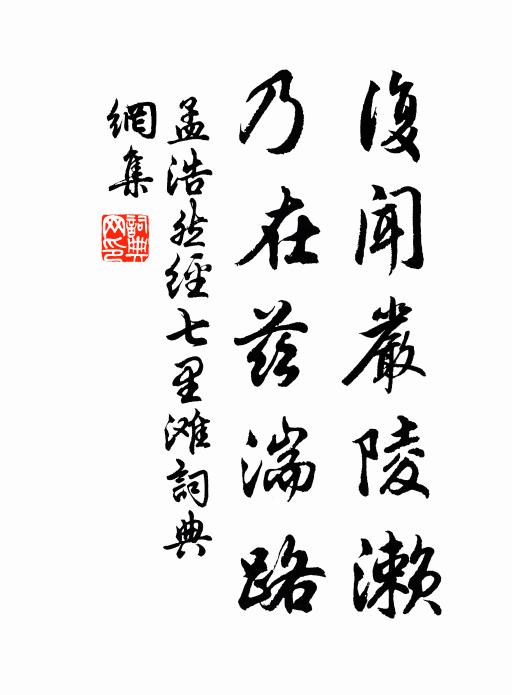 復闻嚴陵濑
乃在茲湍路
孟浩然經七里滩詞典
網集
詞典
网印